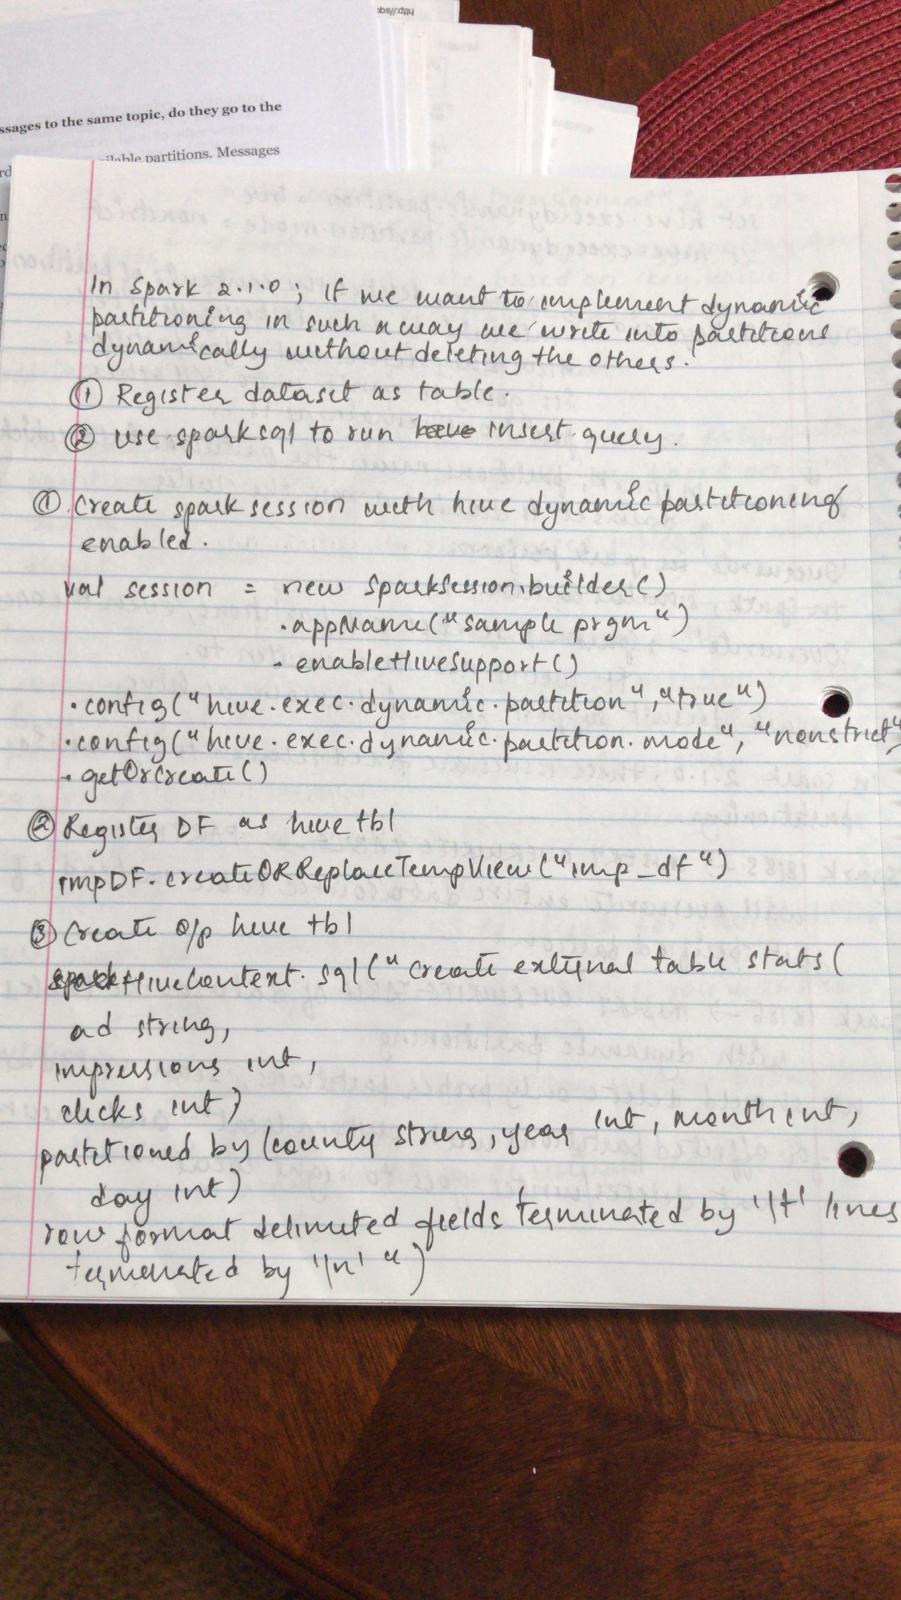 http://sqc
ssages to the same topic, do they go to the
ilable partitions. Messages
In Spark 2.1.0 ; If we want to implement dynamic
partitioning in such a way we write into partitions
dynamically without deleting the others.
① Register dataset as table.
② use spark sql to run have insert query.
① Create spark session with hive dynamic partitioning
enabled.
val session = new SparkSession.builder()
.appName("sample prgm")
.enableHiveSupport()
.config("hive.exec.dynamic.partition","true")
.config("hive.exec.dynamic.partition.mode", "nonstrict")
.getOrCreate()
② Register DF as hive tbl
impDF.createORReplaceTempView("imp_df")
③ Create o/p hive tbl
spark HiveContext.sql("create external table stats(
ad string,
impressions int,
clicks int)
partitioned by (county string, year int, month int,
day int)
row format delimited fields terminated by '\t' lines
terminated by '\n' ")